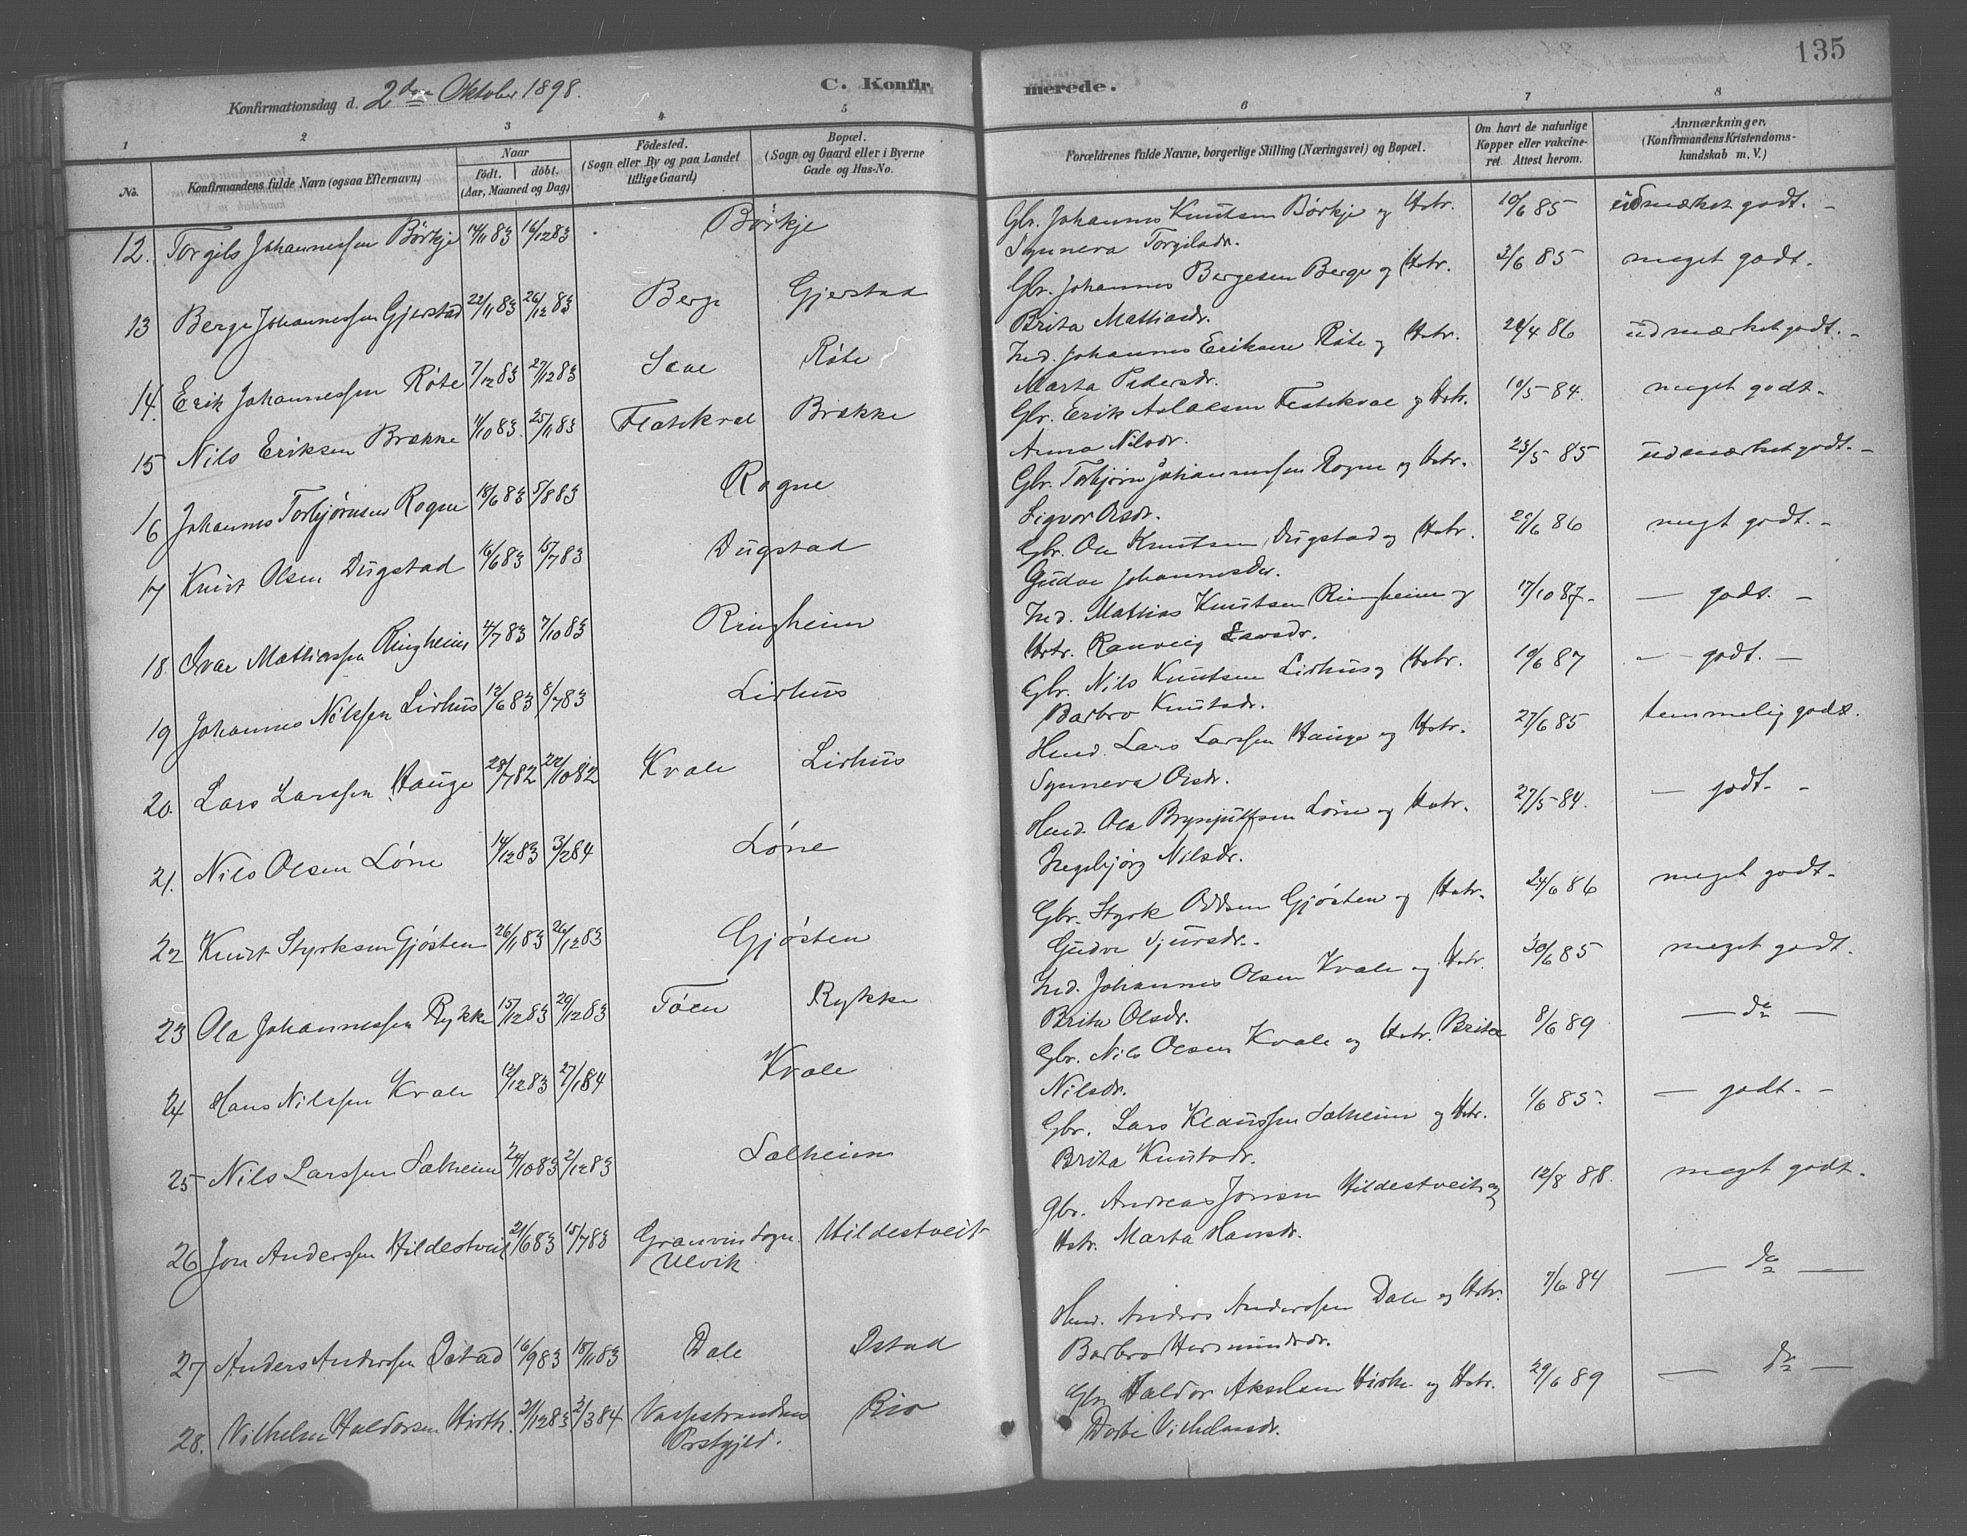 135
Konfirmationsdag d. 2den Oktober 1898.
C. Konfirmerede.
1 2 3 4 5 6 7 8
No.
Konfirmandens fulde Navn (ogsaa Efternavn)
Naar
født. døbt.
(Aar, Maaned og Dag)
Fødested.
(Sogn eller By og paa Landet
tillige Gaard)
Bopæl.
(Sogn og Gaard eller i Byerne
Gade og Hus-No.
Forældrenes fulde Navne, borgerlige Stilling (Næringsvei) og Bopæl.
Om havt de naturlige
Kopper eller vakcine-
ret. Attest herom.
Anmærkninger.
(Konfirmandens Kristendoms-
kundskab m. V.)
12. Torgils Johannessen Børkje 14/11 83 16/12 83 Børkje Gbr. Johannes Knutsen Børkje og Hstr. 10/6 85 udmærket godt. -
Synneva Torgilsdr.
13 Berge Johannessen Gjerstad 22/11 83 26/12 83 Berge Gjerstad Gbr. Johannes Bergesen Berge og Hstr. 3/6 85 meget godt.
Brita Mattiasdr.
14. Erik Johannessen Røte 7/12 83 27/12 83 Saue Røte Ind. Johannes Eriksen Røte og Hstr. 24/4 86 udmærket godt. -
Marta Pedersdr.
15 Nils Eriksen Brække 11/10 83. 25/11 83 Flatekval Brække Gbr. Erik Aslaksen Flatekval og Hstr. 10/5 84. meget godt -
Anna Nilsdr.
16 Johannes Torbjørnsen Rogne 18/6 83 5/8 83 Rogne Gbr. Torbjørn Johannessen Rogne og Hstr. 23/5 85 udmærket godt. -
Sigvor Olsdr.
17 Knut Olsen Dugstad 16/6 83 15/7 83 Dugstad Gbr. Ole Knutsen Dugstad og Hstr. 29/6 86 megt godt. -
Gudve Johannesdr.
18. Ivar Mattiassen Ringheim 4/7 83 7/10 83 Ringheim Ind. Mattias Knutsen Ringheim og 17/10 87. - - godt. -
Hstr. Ranveig Larsdr.
19 Johannes Nilssen Lirhus 12/6 83 8/7 83 Lirhus Gbr. Nils Knutsen Lirhus og Hstr. 10/6 87 - - godt. -
Barbro Knutsdr.
20. Lars Larssen Hauge 28/7 82 22/10 82 Kvale Lirhus Hmd. Lars Larssen Hauge og Hstr. 27/6 85 temmelig godt.
Synneva Olsdr.
21. Nils Olsen Løne 14/12 83 3/2 84 Løne Hmd. Ola Brynjulfsen Løne og Hstr. 27/5 84. - godt. -
Ingebjørg Nilsdr.
22 Knut Styrksen Gjøsten 26/11 83 26/12 83 Gjøsten Gbr. Styrk Oddsen Gjøsten og Hstr. 24/6 86 meget godt.
Gudve Sjursdr.
23 Ola Johannessen Rykke 15/12 83 29/12 83 Tøen Rykke Ind. Johannes Olsen Kvale og Hstr. 30/6 85 meget godt.
Brita Olsdr.
24 Hans Nilssen Kvale 12/12 83 27/1 84 Kvale Gbr. Nils Olsen Kvale og Hstr. Brita 8/6 89 - do -
Nilsdr.
25 Nils Larssen Sælheim 24/10 83 2/12 83 Sælheim Gbr. Lars Klaussen Sælheim og Hstr. 1/6 85. - godt. -
Brita Knutsdr.
26 Jon Anderssen Hildestveit 21/6 83 15/7 83 Granvin Sogn. Hildestveit Gbr. Andreas Jonsen Hildestveit og 12/8 88. meget godt.
Ulvik
Hstr. Marta Hansdr.
27 Anders Anderssen Istad 16/9 83 18/11 83 Dale Istad Hmd. Anders Anderssen Dale og Hstr. 7/6 84 - do -
Barbro Hermundsdr.
28. Vilhelm Haldorsen Hirth. 21/12 83 2/3 84 Vossestrandens Rio Gbr. Haldor Akselsen Hirth og Hstr. 29/6 89 - do -
Prstgjeld.
Dorte Vilhelmsdr.